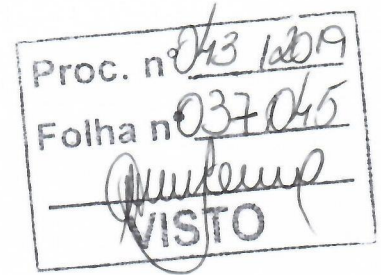 Proc. nº 043/2019
Folha nº 037 045
VISTO